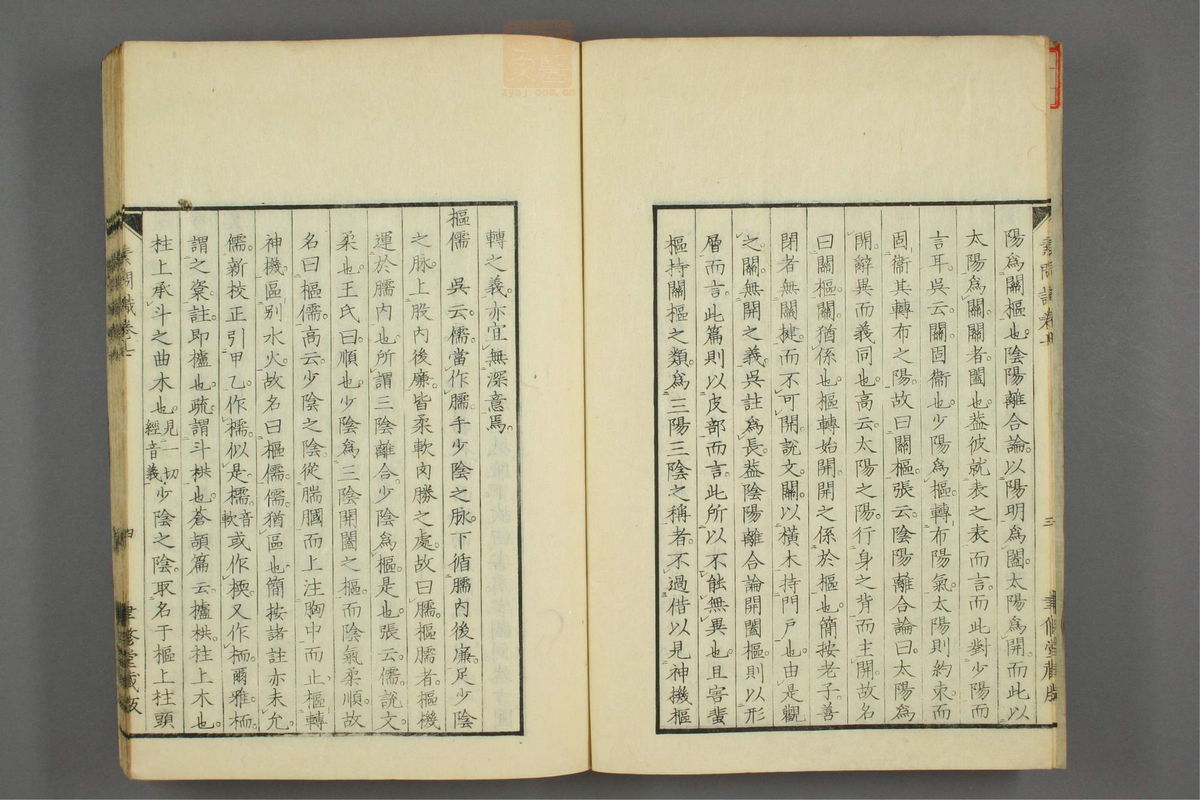 陽爲關樞也。陰陽離合論。以陽明爲闔。太陽爲開。而此以
太陽爲關。關者闔也。蓋彼就表之表而言。而此對少陽而
言耳。吳云。關。固衞也。少陽爲樞。轉布陽氣。太陽則約束而
固衞其轉布之陽。故曰關樞。張云。陰陽離合論曰。太陽爲
開。辭異而義同也。高云。太陽之陽。行身之背而主開。故名
曰關樞。關猶係也。樞轉始開。開之係於樞也。簡按老子。善
閉者無關揵。而不可開。說文。關。以橫木持門戶也。由是觀
之。關無開之義。吳註爲長。蓋陰陽離合論開闔樞。則以形
層而言。此篇則以皮部而言。此所以不能無異也。且害蜚
樞持關樞之類。爲三陽三陰之稱者。不過借以見神機樞
轉之義。亦宜無深意焉。
樞儒 吳云。儒。當作臑。手少陰之脉。下循臑內後廉。足少陰
之脉。上股內後廉。皆柔軟肉勝之處。故曰臑。樞臑者。樞機
運於臑內也。所謂三陰離合。少陰爲樞是也。張云。儒。說文
柔也。王氏曰。順也。少陰爲三陰開闔之樞。而陰氣柔順。故
名曰樞儒。高云。少陰之陰。從腨膕而上注胸中而止。樞轉
神機。區別水火。故名曰樞儒。儒猶區也。簡按諸註亦未允。
儒。新校正引甲乙。作檽。似是。檽音軟或作㮕。又作栭。爾雅。栭。
謂之楶。註。即櫨也。疏。謂斗栱也。蒼頡篇云。櫨。栱。柱上木也。
柱上承斗之曲木也。見一切經音義少陰之陰。取名于樞上柱頭
素問識卷七
四
聿修堂藏版